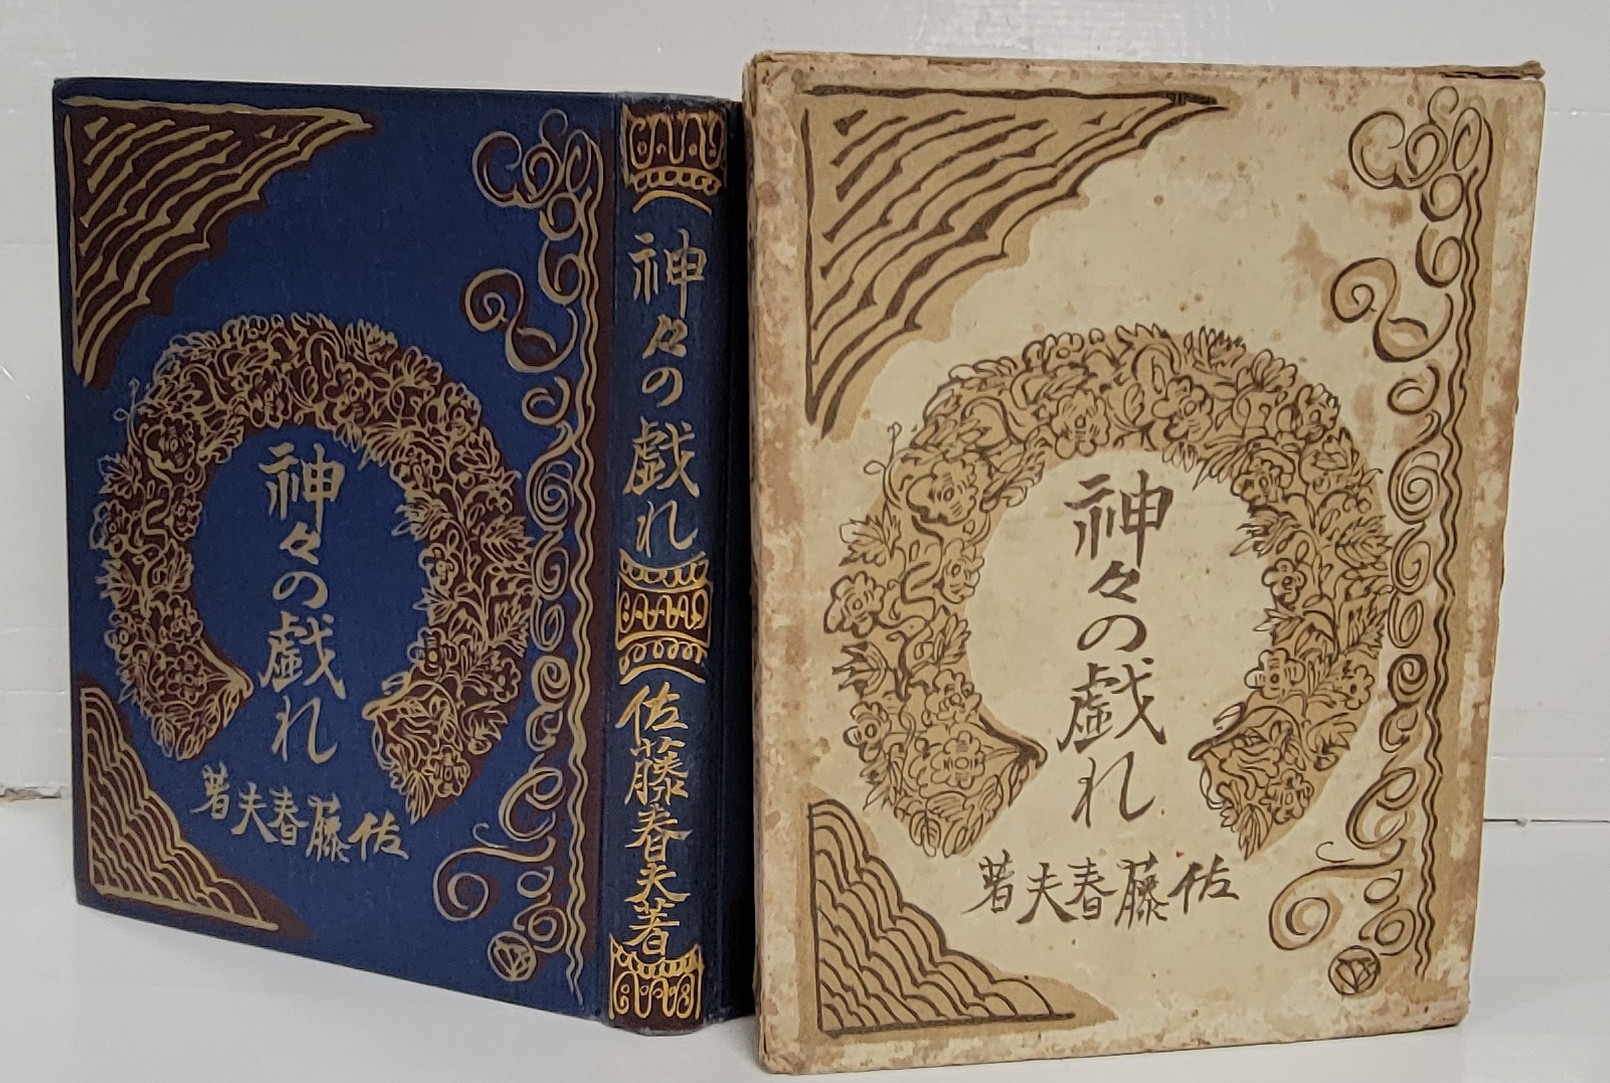 神々の戯れ
佐藤春夫著
神々の戯れ
佐藤春夫著
神々の戯れ
佐藤春夫著